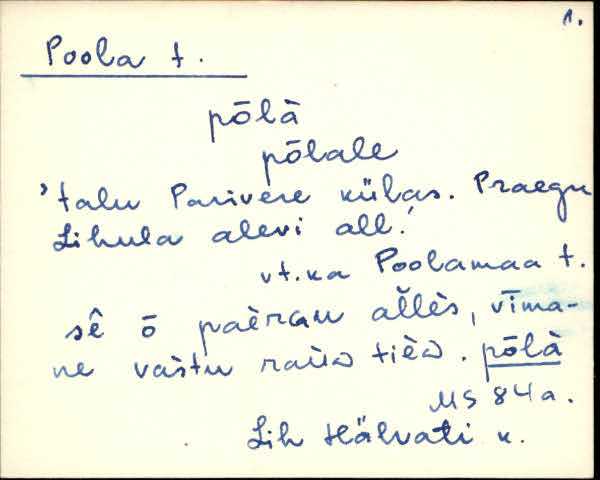 1.
Poola t.
pōlà
pōlale
'talu Parivere külas. Praegu
Lihula alevi all.'
vt. ka Poolamaa t.
sê ō paèran al̆lès, vīma-
ne vastu raùa tièà. pōlà
MS 84a.
Lih Hälvati k.